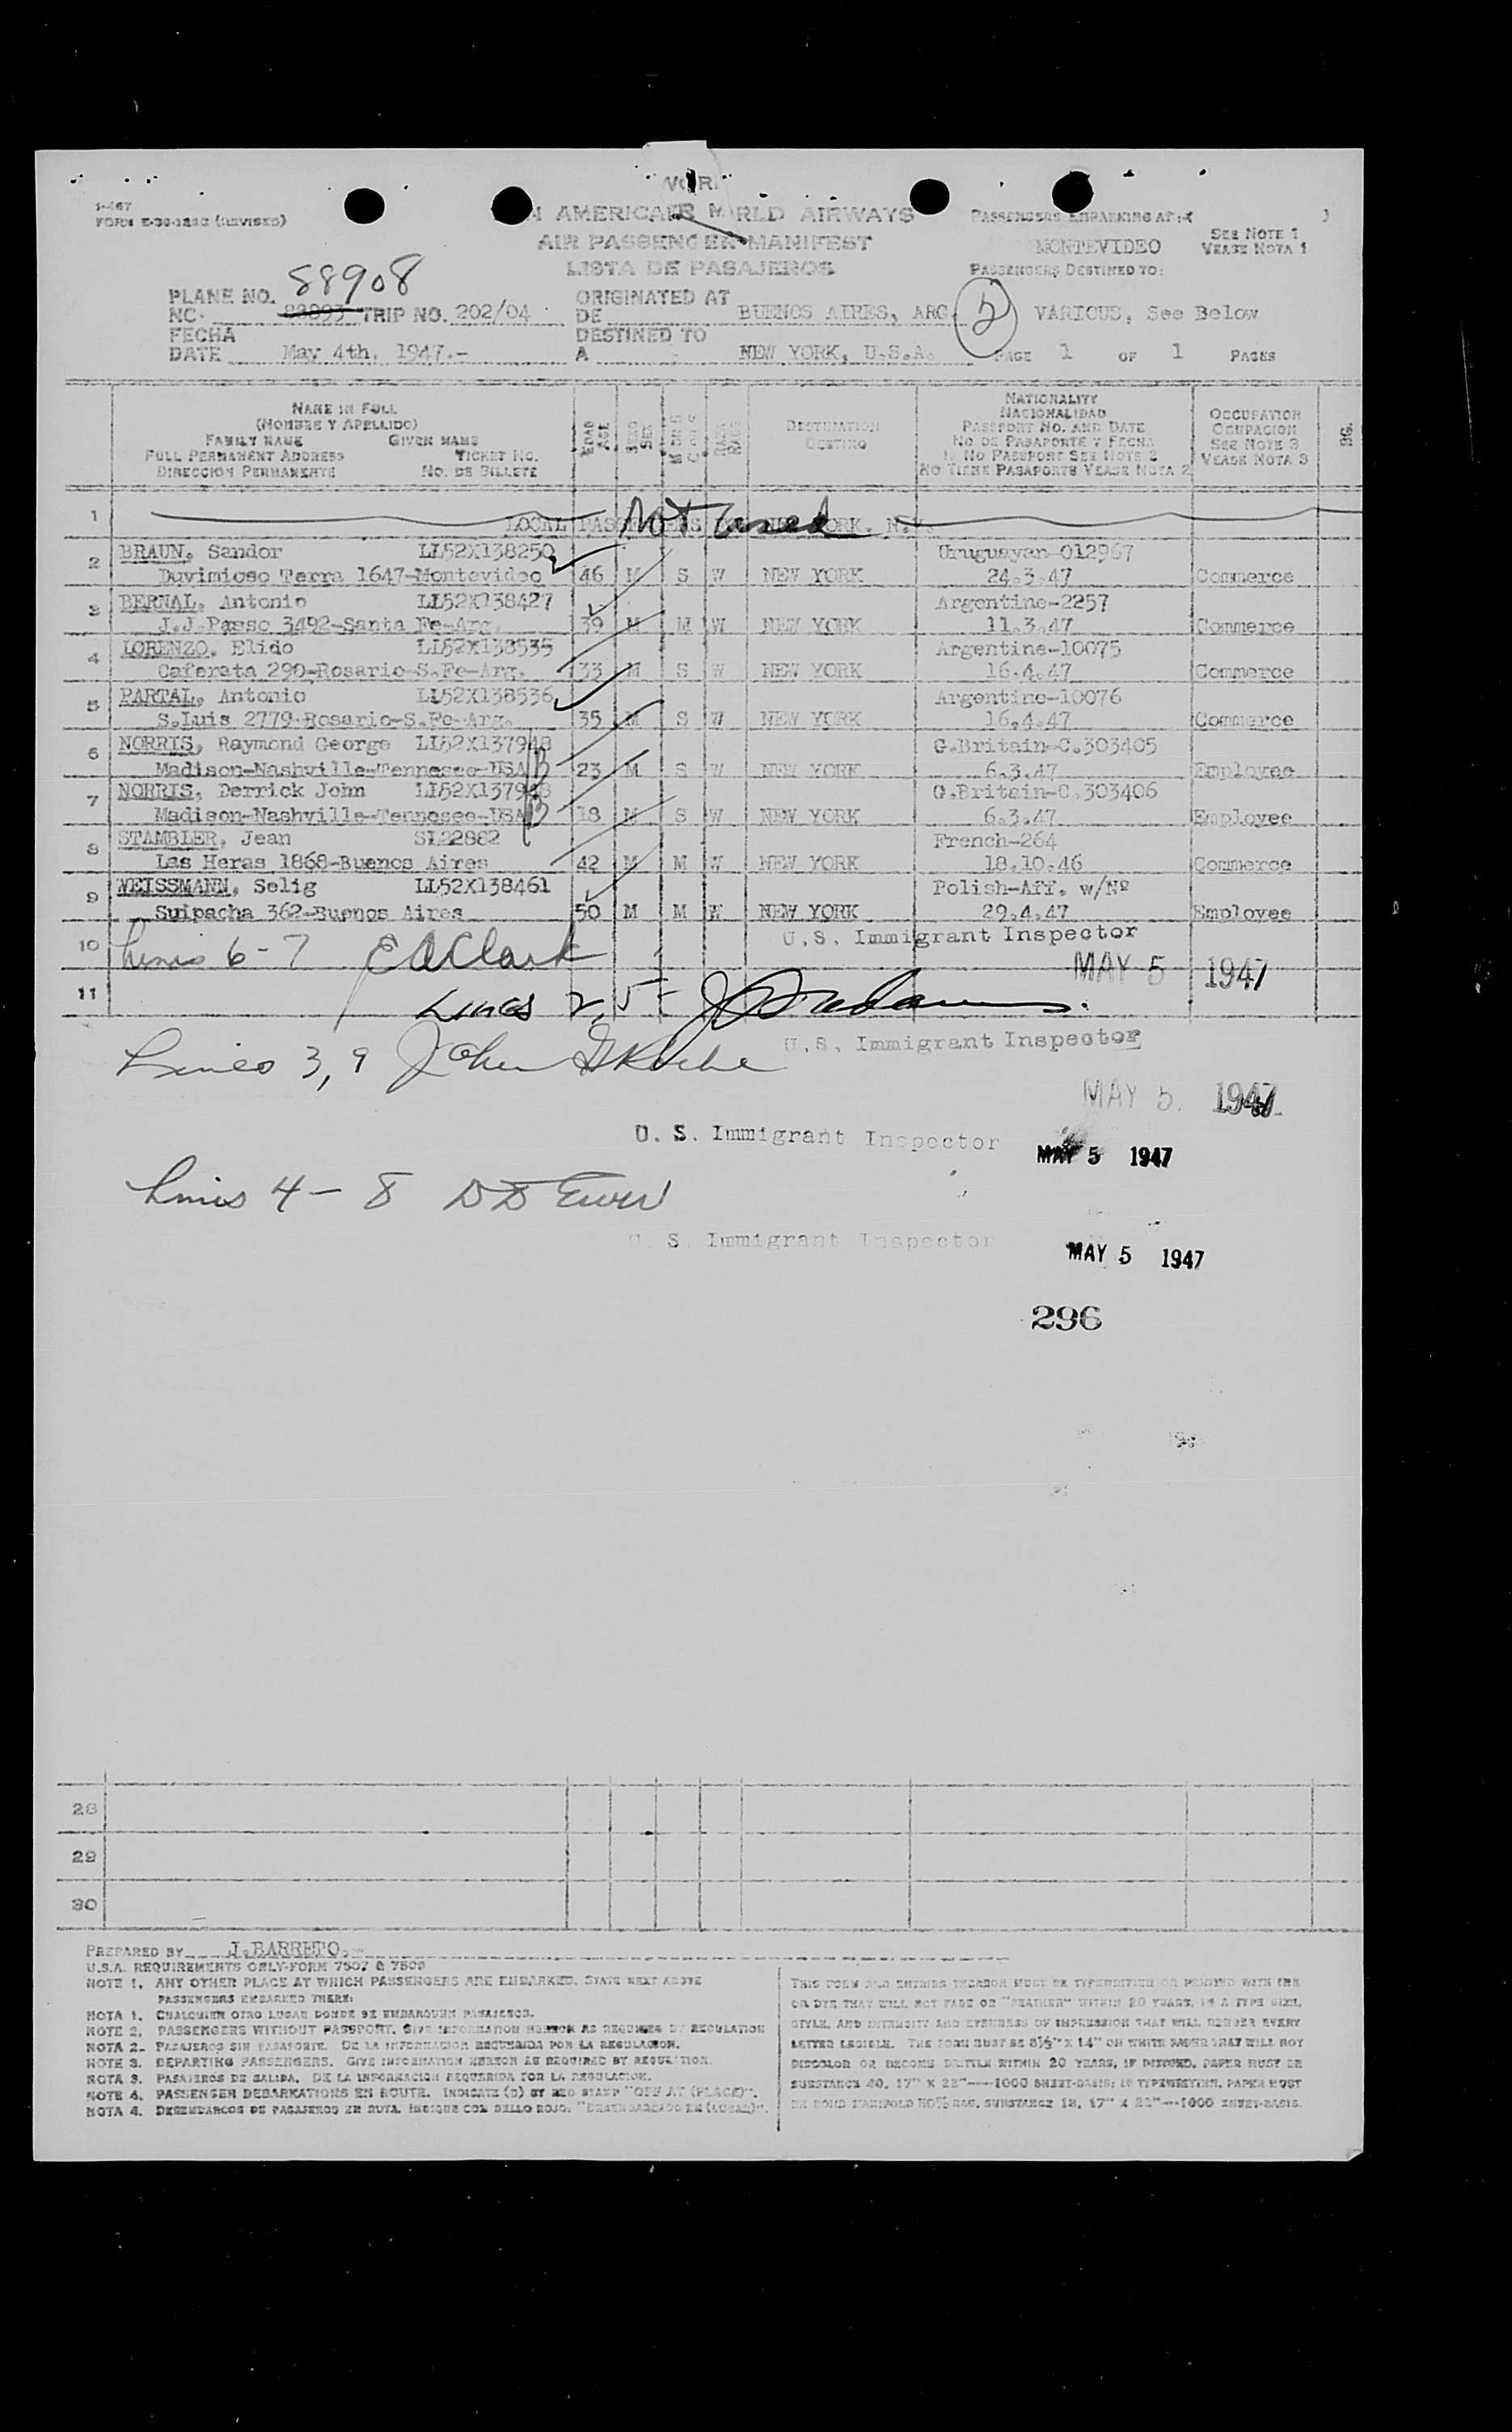 I-467
FORM E-30-123C (REVISED)
AMERICAN WORLD AIRWAYS
AIR PASSENGER MANIFEST
LISTA DE PASAJEROS
PASSENGERS EMBARKING AT:
SEE NOTE 1
MONTEVIDEO VEASE NOTA 1
PASSENGERS DESTINED TO:
88908
PLANE NO. ORIGINATED AT
NC- 88893 TRIP NO. 202/04 DE BUENOS AIRES, ARG. VARIOUS, See Below
FECHA DESTINED TO
DATE May 4th, 1947.- A NEW YORK, U.S.A. PAGE 1 OF 1 PAGES
NAME IN FULL
(NOMBRE Y APELLIDO)
FAMILY NAME GIVEN NAME
FULL PERMANENT ADDRESS TICKET NO.
DIRECCION PERMANENTE NO. DE BILLETE
EDAD AGE
SEXO SEX
DESTINATION
DESTINO
NATIONALITY
NACIONALIDAD
PASSPORT NO. AND DATE
NO DE PASAPORTE Y FECHA
IF NO PASSPORT SEE NOTE 2
NO TIENE PASAPORTE VEASE NOTA 2
OCCUPATION
OCUPACION
SEE NOTE 3
VEASE NOTA 3
1 LOCAL PASSENGERS Not used YORK. N.Y.
2 BRAUN, Sandor LL52X138250 Uruguayan-012967
Duvimioso Terra 1647-Montevideo 46 M S W NEW YORK 24.3.47 Commerce
3 BERNAL, Antonio LL52X138427 Argentine-2257
J.J.Passo 3492-Santa Fe-Arg. 39 M M W NEW YORK 11.3.47 Commerce
4 LORENZO, Elido LL52X138535 Argentine-10075
Caferata 290-Rosario-S.Fe-Arg. 33 M S W NEW YORK 16.4.47 Commerce
5 PARTAL, Antonio LL52X138536 Argentine-10076
S.Luis 2779-Rosario-S.Fe-Arg. 35 M S W NEW YORK 16.4.47 Commerce
6 NORRIS, Raymond George LL52X137948 G.Britain-C.303405
Madison-Nashville-Tennesee-USA 23 M S W NEW YORK 6.3.47 Employee
7 NORRIS, Derrick John LL52X137948 G.Britain-C.303406
Madison-Nashville-Tennesee-USA 18 M S W NEW YORK 6.3.47 Employee
8 STAMBLER, Jean SL22882 French-264
Las Heras 1868-Buenos Aires 42 M M W NEW YORK 18.10.46 Commerce
9 WEISSMANN, Selig LL52X138461 Polish-Aff. w/Nº
Suipacha 362-Buenos Aires 50 M M W NEW YORK 29.4.47 Employee
10 Lines 6-7 E A Clark U.S. Immigrant Inspector
MAY 5 1947
11 Lines 2, 5-
Lines 3, 9 John G Roche U.S. Immigrant Inspector
MAY 5 1947
U. S. Immigrant Inspector MAY 5 1947
Lines 4 - 8
U. S. Immigrant Inspector MAY 5 1947
296
28
29
30
PREPARED BY J.BARRETO.-
U.S.A. REQUIREMENTS ONLY-FORM 7507 & 7508
NOTE 1. ANY OTHER PLACE AT WHICH PASSENGERS ARE EMBARKED. STATE NEXT ABOVE
PASSENGERS EMBARKED THERE:
NOTA 1. CUALQUIER OTRO LUGAR DONDE SE EMBARQUEN PASAJEROS.
NOTE 2. PASSENGERS WITHOUT PASSPORT. GIVE INFORMATION HEREON AS REQUIRED BY REGULATION
NOTA 2- PASAJEROS SIN PASAPORTE. DE LA INFORMACION REQUERIDA POR LA REGULACION.
NOTE 3. DEPARTING PASSENGERS. GIVE INFORMATION HEREON AS REQUIRED BY REGULATION.
NOTA 3. PASAJEROS DE SALIDA. DE LA INFORMACION REQUERIDA POR LA REGULACION.
NOTE 4. PASSENGER DEBARKATIONS EN ROUTE. INDICATE (D) BY RED STAMP "OFF AT (PLACE)".
NOTA 4. DESEMBARCOS DE PASAJEROS EN RUTA. INDIQUE CON SELLO ROJO: "DESEMBARCADO EN (LUGAR)".
THIS FORM AND ENTRIES THEREON MUST BE TYPEWRITTEN OR PRINTED WITH INK
OR DYE THAT WILL NOT FADE OR "FEATHER" WITHIN 20 YEARS, IN A TYPE SIZE,
STYLE, AND INTENSITY AND EVENNESS OF IMPRESSION THAT WILL RENDER EVERY
LETTER LEGIBLE. THE FORM MUST BE 8½" X 14" ON WHITE PAPER THAT WILL NOT
DISCOLOR OR BECOME BRITTLE WITHIN 20 YEARS, IF PRINTED, PAPER MUST BE
SUBSTANCE 40, 17" X 22"----1000 SHEET-BASIS; IF TYPEWRITTEN, PAPER MUST
BE BOND MANIFOLD 50% RAG, SUBSTANCE 18, 17" X 22"---1000 SHEET-BASIS.